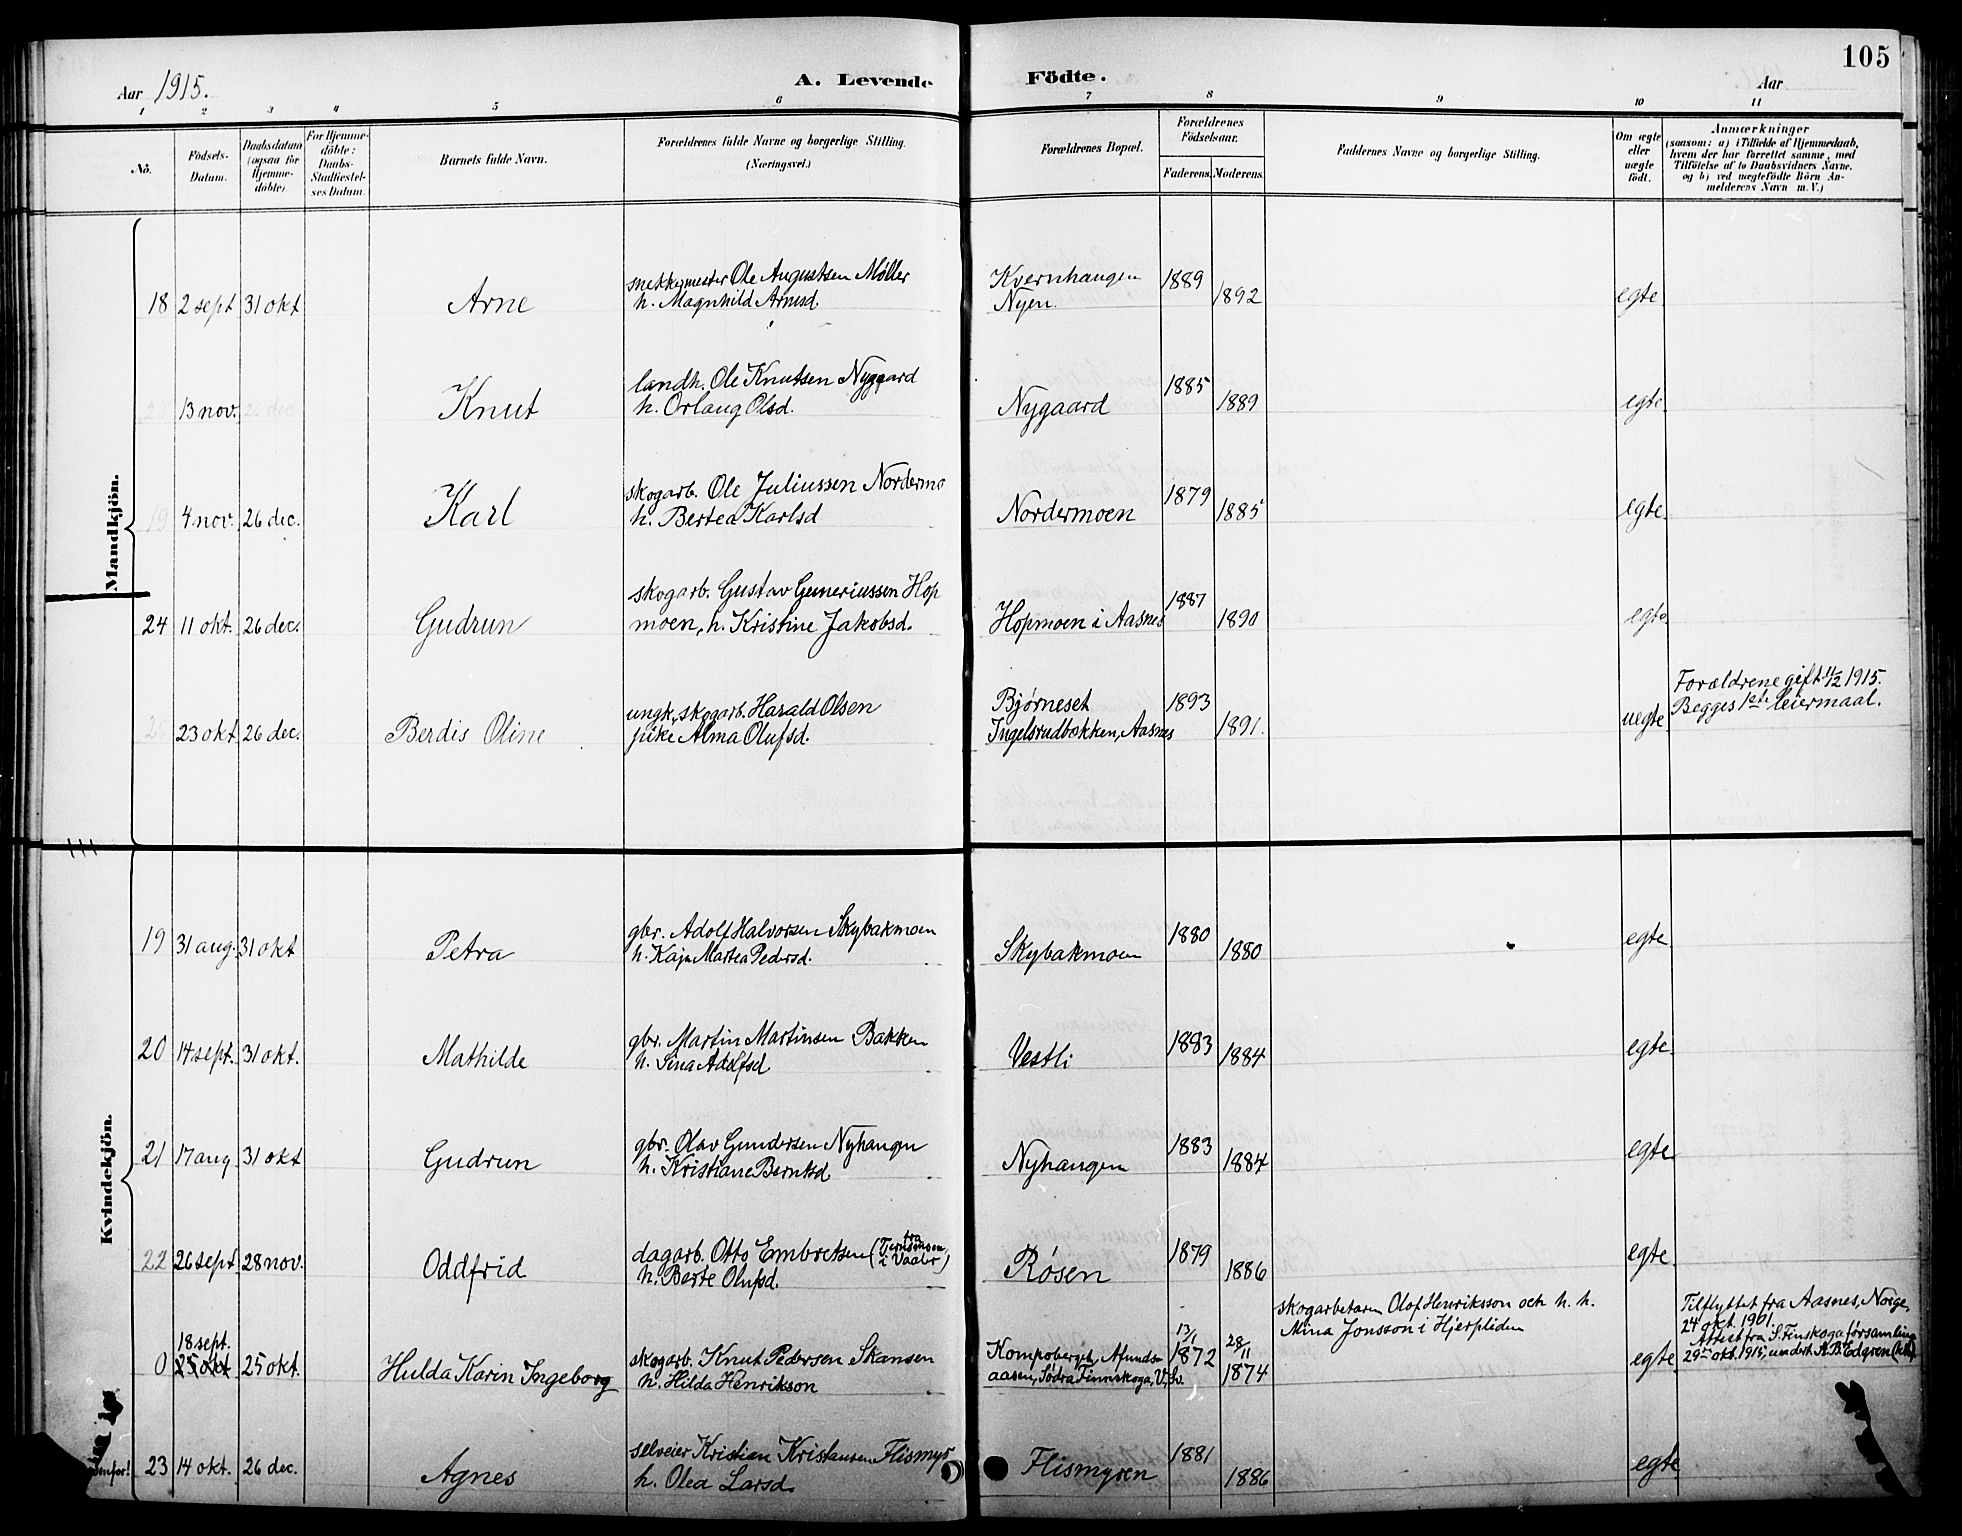 105
Aar 1915.
A. Levende Födte.
Aar
1 2 3 4 5 6 7 8 9 10 11
No.
Födsels-Datum.
Daabsdatum (ogsaa för Hjemmedöbte).
For Hjemmedöbte: Daabs-Stadfæstelses Datum.
Barnets fulde Navn.
Forældrenes fulde Navne og borgerlige Stilling.
(Næringsvei.)
Forældrenes Bopæl.
Forældrenes Födselsaar.
Faderens. Moderens.
Faddernes Navne og borgerlige Stilling.
Om ægte eller uægte födt.
Anmærkninger
(saasom: a) i Tilfælde af Hjemmedaab,
hvem der har forrettet samme, med
Tilföielse af to Daabsvidners Navne,
og b) ved uægtefödte Börn An-
melderens Navn m. V.)
Mandkjön.
18 2 sept 31 okt Arne snekkermester Ole Augustsen Møller
h. Magnhild Arnesd. Kvernhaugen
Nyen. 1889 1892 egte
20 13 nov. 26 dec Knut landh. Ole Knutsen Nygaard
h. Orlaug Olsd. Nygaard 1885 1889 egte
19 4 nov. 26 dec. Karl skogarb. Ole Juliussen Nordermo
h. Bertea Karlsd Nordermoen 1879 1885 egte
24 11 okt. 26 dec. Gudrun skogarb. Gustav Guneriussen Hop
moen, h. Kristine Jakobsd. Hopmoen i Aasnes 1887 1890 egte
25 23 okt 26 dec. Berdis Oline ungk. skogarb. Harald Olsen
pike Alma Olufsd. Bjørneset
Ingelsrudbakken, Aasnes 1893 1891. uegte
Forældrene gift 11/12 1915.
Begges 1ste leiermaal.
Kvindekjön.
19 31 aug. 31 okt Petra gbr. Adolf Halvorsen Skybakmoen
h. Kaja Martea Pedersd. Skybakmoen 1880 1880 egte
20 14 sept. 31 okt. Mathilde gbr. Martin Martinsen Bakken
h. Sina Adolfsd Vestli 1883 1884 egte
21 17 aug 31 okt Gudrun gbr. Olav Gundersen Nyhaugen
h. Kristiane Berntsd Nyhaugen 1883 1884 egte
22 26 sept. 28 nov. Oddfrid dagarb. Otto Embretsen (fra
i Vaaler)
h. Berte Olufsd. Røsen 1879 1886 egte
0 18 sept. 25 okt 25 okt. Hulda Karin Ingeborg skogarb. Knut Pedersen Skansen
h. Hilda Henrikson Kompoberget, Afunds-
aasen, Södra Finnskoga, V. Sv. 13/1 1872 28/11 1874
skogarbetaren Olof Henriksson och h. h.
Mina Jonsson i Hjerpliden egte
Tilflyttet fra Aasnes, Norge,
24 okt. 1901.
Attest fra S. Finskoga församling
29 okt. 1915, underts. A. B. Edgren
23 14 okt. 26 dec. Agnes selveier Kristian Kristiansen Flismyr
h. Olea Larsd. Flismyren 1881 1886 egte